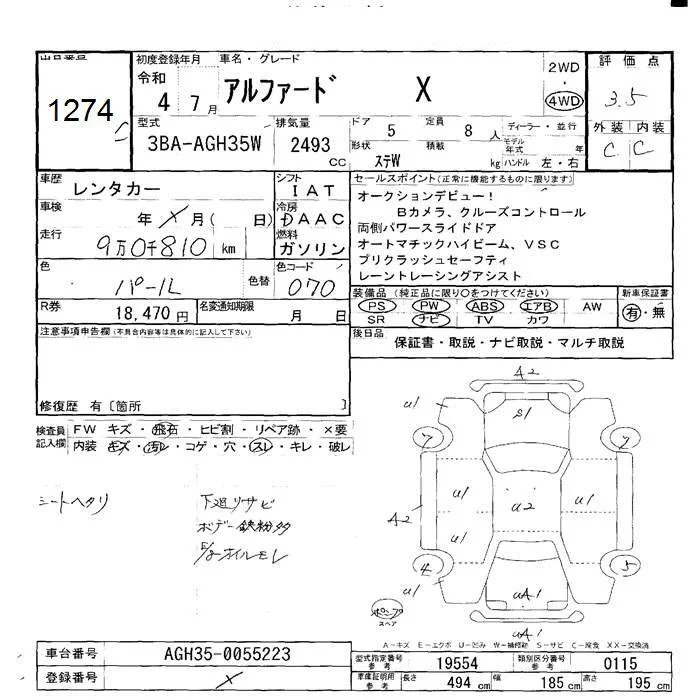 出品番号
1274
初度登録年月
令和
4 7月
車名・グレード
アルファード X
2WD
・
4WD
評価点
3.5
外装 内装
C C
型式
3BA-AGH35W
排気量
2493
cc
ドア
5
定員
8 人
形状
ステW
積載
kg
ディーラー・並行
モデル年式 年
ハンドル 左・右
車歴
レンタカー
シフト
IAT
車検
年 × 月( 日)
冷房
DAAC
走行
9万0千810 km
燃料
ガソリン
色
パール
色替
色コード
070
R券
18,470 円
名変通知期限
月 日
セールスポイント(正常に機能するものに限ります)
オークションデビュー!
Bカメラ、クルーズコントロール
両側パワースライドドア
オートマチックハイビーム、VSC
プリクラッシュセーフティ
レーントレーシングアシスト
装備品(純正品に限り○をつけてください)
PS PW ABS エアB AW
SR ナビ TV カワ
新車保証書
有・無
後日品
保証書・取説・ナビ取説・マルチ取説
注意事項申告欄(不具合内容等は具体的に記入して下さい)
修復歴 有〔箇所 〕
検査員記入欄
FW キズ・飛石・ヒビ割・リペア跡・×要
内装 キズ・汚レ・コゲ・穴・スレ・キレ・破レ
シートヘタリ
下廻りサビ
ボデー鉄粉多
E/gオイルモレ
A2
U1 S1
7 7
U1 U1
A2 U2
U1
4 5
U1 UA1
UA1
スペア
A-キズ E-エクボ U-凹み W-補修跡 S-サビ C-腐食 XX-交換済
車台番号
AGH35-0055223
登録番号
×
型式指定番号 参考
19554
類別区分番号 参考
0115
車庫証明用 参考
長さ 494 cm
幅 185 cm
高さ 195 cm